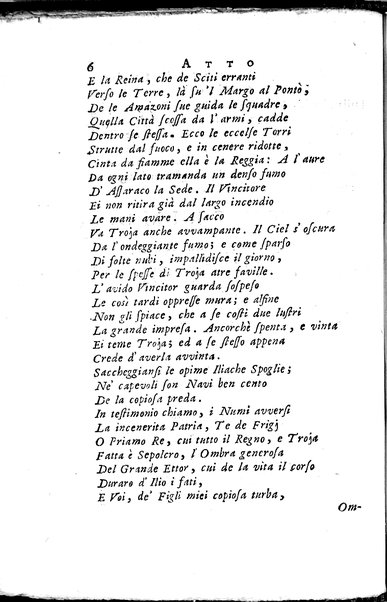 6 ATTO
E la Reina, che de Sciti erranti
Verſo le Terre, là ſu 'l Margo al Ponto,
De le Amazoni ſue guida le ſquadre,
Quella Città ſceſſa da l'armi, cadde
Dentro ſe ſteſſa. Ecco le eccelſe Torri
Strutte dal fuoco, e in cenere ridotte,
Cinta da fiamme ella è la Reggia: A l'aure
Da ogni lato tramanda un denſo fumo
D'Aſſaraco la Sede. Il Vincitore
Ei non ritira già dal largo incendio
Le mani avare. A ſacco
Va Troja anche avvampante. Il Ciel s'oſcura
Da l'ondeggiante fumo; e come ſparſo
Di folte nubi, impallidiſce il giorno,
Per le ſpeſſe di Troja atre faville.
L'avido Vincitor guarda ſoſpeſo
Le così tardi oppreſſe mura; e alfine
Non gli ſpiace, che a ſe coſti due luſtri
La grande impreſa. Ancorchè ſpenta, e vinta
Ei teme Troja; ed a ſe ſteſſo appena
Crede d'averla avvinta.
Saccheggianſi le opime Iliache Spoglie;
Ne' capevoli ſon Navi ben cento
De la copioſa preda.
In teſtimonio chiamo, i Numi avverſi
La incenerita Patria, Te de Frigj
O Priamo Re, cui tutto il Regno, e Troja
Fatta è Sepolcro, l'Ombra generoſa
Del Grande Ettor, cui de la vita il corſo
Duraro d'Ilio i fati,
E Voi, de' Figli miei copioſa turba,
Om-